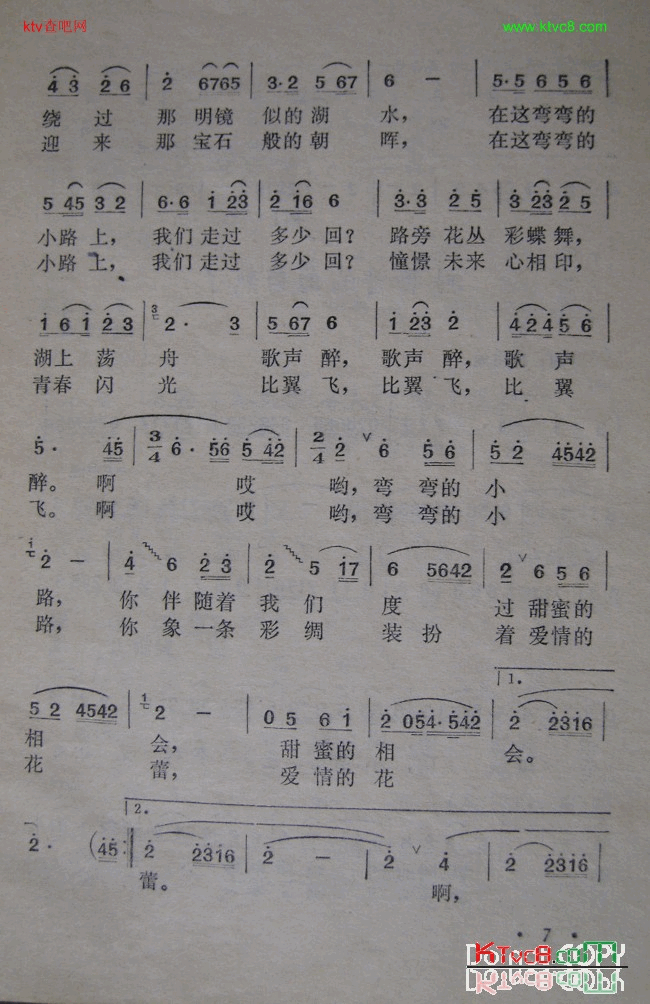 ktv查吧网 www.ktvc8.com
4 3 2 6 | 2 6765 | 3·2 5 67 | 6 - | 5·5 6 5 6 |
绕过那明镜似的湖水，在这弯弯的
迎来那宝石般的朝晖，在这弯弯的
5 45 3 2 | 6·6 1 23 | 2 16 6 | 3·3 2 5 | 3 23 2 5 |
小路上，我们走过多少回？路旁花丛彩蝶舞，
小路上，我们走过多少回？憧憬未来心相印，
1 6 1 2 3 | 2· 3 | 5 67 6 | 1 23 2 | 4 2 4 5 6 |
湖上荡舟歌声醉，歌声醉，歌声
青春闪光比翼飞，比翼飞，比翼
5· 45 | 3/4 6· 56 5 42 | 2/4 2 ∨ 6 5 6 | 5 2 4542 |
醉。啊哎哟，弯弯的小
飞。啊哎哟，弯弯的小
2 - | 4 6 2 3 | 2 5 17 | 6 5642 | 2 ∨ 6 5 6 |
路，你伴随着我们度过甜蜜的
路，你象一条彩绸装扮着爱情的
1.
5 2 4542 | 2 - | 0 5 6 1 | 2 054·542 | 2 2316 |
相会，甜蜜的相会。
花蕾，爱情的花
2.
2· (45 :‖ 2 2316 | 2 - | 2 ∨ 4 | 2 2316 |
蕾。啊，
• 7 •
KTvc8.com
DO NOT COPY